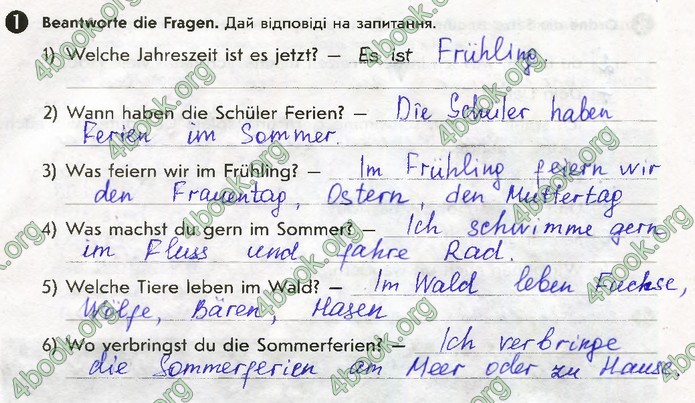 1 Beantworte die Fragen. Дай відповіді на запитання.
1) Welche Jahreszeit ist es jetzt? – Es ist Frühling.
2) Wann haben die Schüler Ferien? – Die Schüler haben
Ferien im Sommer.
3) Was feiern wir im Frühling? – Im Frühling feiern wir
den Frauentag, Ostern, den Muttertag
4) Was machst du gern im Sommer? – Ich schwimme gern
im Fluss und fahre Rad.
5) Welche Tiere leben im Wald? – Im Wald leben Fuchse,
Wölfe, Bären, Hasen
6) Wo verbringst du die Sommerferien? – Ich verbringe
die Sommerferien am Meer oder zu Hause.
4book.org